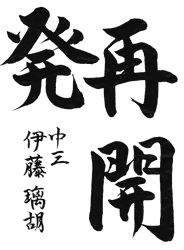 再開
発
中三
伊藤璃胡